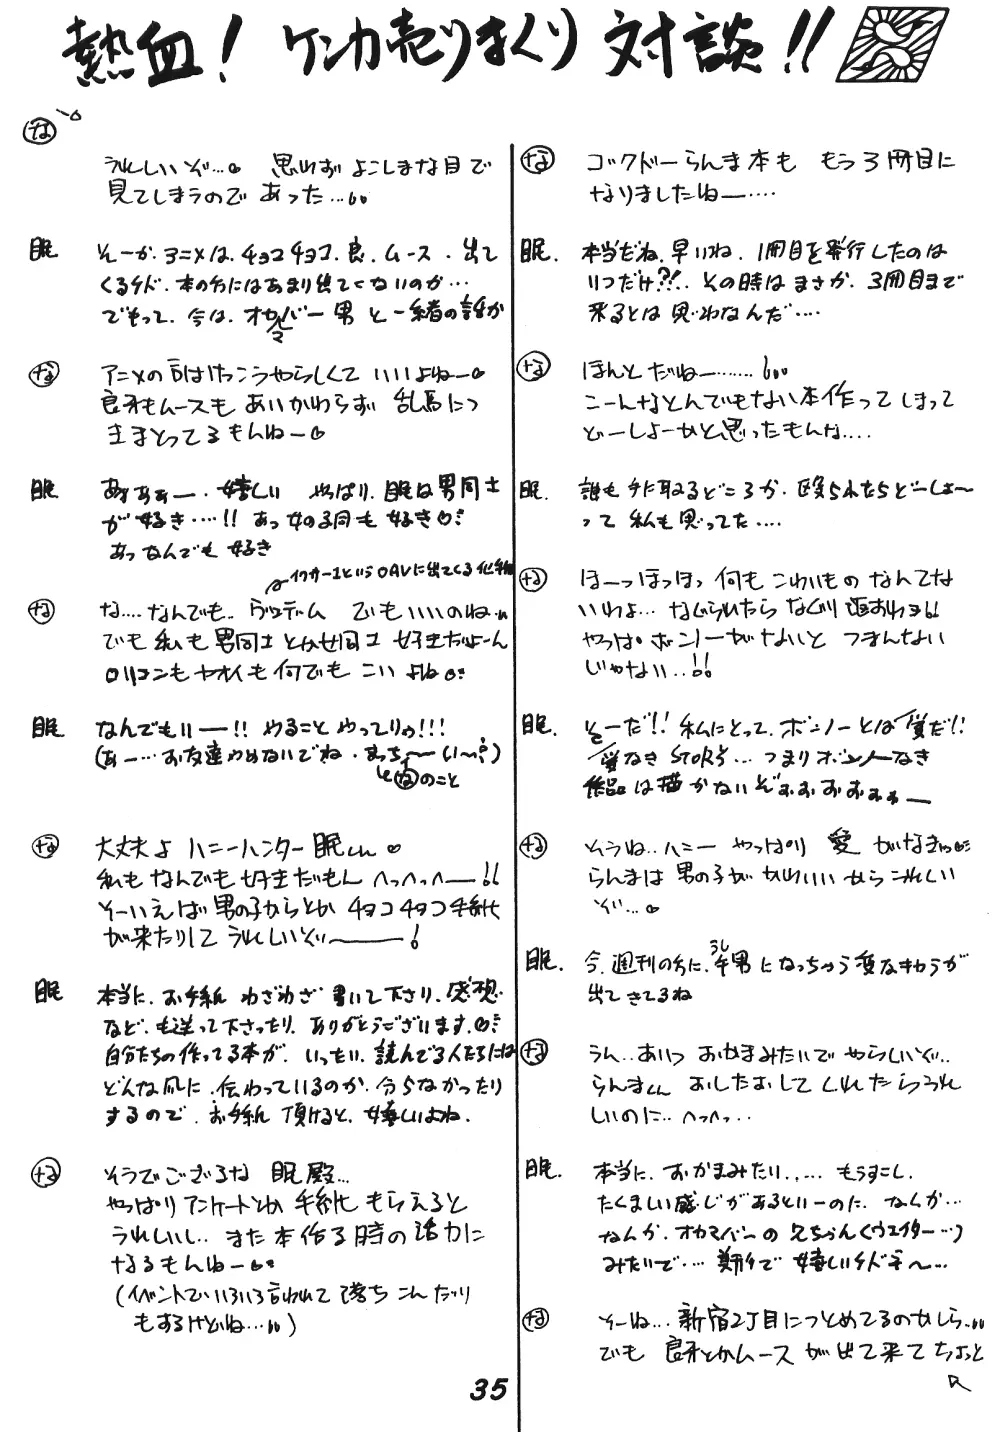 熱血! ケンカ売りまくり 対談!!
な コックドーらんま本も もう3冊目に
なりましたねー‥‥
眠. 本当だね.早いね. 1冊目を発行したのは
いつだけ?!. その時はまさか.3冊目まで
来るとは思わなんだ‥‥
な ほんとだねー‥‥‥
こーんなとんでもない本作ってしまって
どーしよーかと思ったもんな‥‥
眠. 誰も手に取るどころか.殴られたらどーしよ〜
って私も思ってた‥‥
な ほーっほっほっ何もこわいものなんてな
いわよ‥ なぐられたらなぐり返おわよ!!
やっぱボンノーがないと つまんない
じゃない‥!!
眠. そーだ!! 私にとって.ボンノーとは愛だ!!
愛なきSTORY‥‥つまりボンノーなき
作品は描かないぞぉぉぉぉぉー
な そうね‥ハニー やっぱり 愛 がなきゃ♡
らんまは 男の子が かわいいからうれしい
ぞ‥♡
眠. 今.週刊の方に.牛男になっちゃう変なキャラが
うし
出てきてるね
な うん‥あいつ おかまみたいで やらしいぞ‥
らんまくん おしたおしてくれたらうれ
しいのに‥へっへっ‥
眠. 本当に.おかまみたい‥‥ もうすこし.
たくましい感じがあるといーのに.なんか‥
なんか.オカマバーの兄ちゃん(ウエイター‥)
みたいで‥‥ 期待で 嬉しいけどネ〜‥
な そーね‥ 新宿2丁目につとめてるのかしら‥
でも 良牙とかムースが出て来てちょっと
な うれしいぞ‥♡ 思わずよこしまな目で
見てしまうので あった‥
眠 そーか.アニメは.チョコチョコ.良.ムース.出て
くるけド.本の方にはあまり出てくないのか‥
でもって.今は.オカマバー男と一緒の話か
な アニメの方はけっこうやらしくて いいよねー♡
良牙もムースも あいかわらず 乱馬につ
きまとってるもんねー♡
眠 あぁぁぁー.嬉しい やっぱり.眠は男同士
が好き‥‥!! あっ女の子同も好き♡
あっなんでも好き
という OAVに出てくる
な な‥‥なんでも‥ でもいいのね
でも 私も男同士とか女同士 好きだよーん
ロリコンもヤオイも何でも こい よね♡
眠 なんでもいー!! やることやってりゃ!!!
(あー‥‥お友達やめないでね.まっち〜い〜?)
なのこと
な 大丈夫よ ハニーハンター眠くん♡
私もなんでも好きだもん へっへっへー!!
そーいえば男の子からとか チョコチョコ手紙
が来たりして うれしいぞぃー!
眠 本当に.お手紙 わざわざ 書いて下さり.感想.
など.も送って下さったり.ありがとうございます.♡
自分たちの作ってる本が.いったい.読んでる人たちには
どんな風に.伝わっているのか.分らなかったり
するので.お手紙 頂けると.嬉しいよね.
な そうでございるな 眠 殿‥
やっぱりアンケートとか 手紙 もらえると
うれしいし.また本作る時の活力に
なるもんねー♡
(イベントでいろいろ言われて 落ち こんだり
もするけどね‥)
35